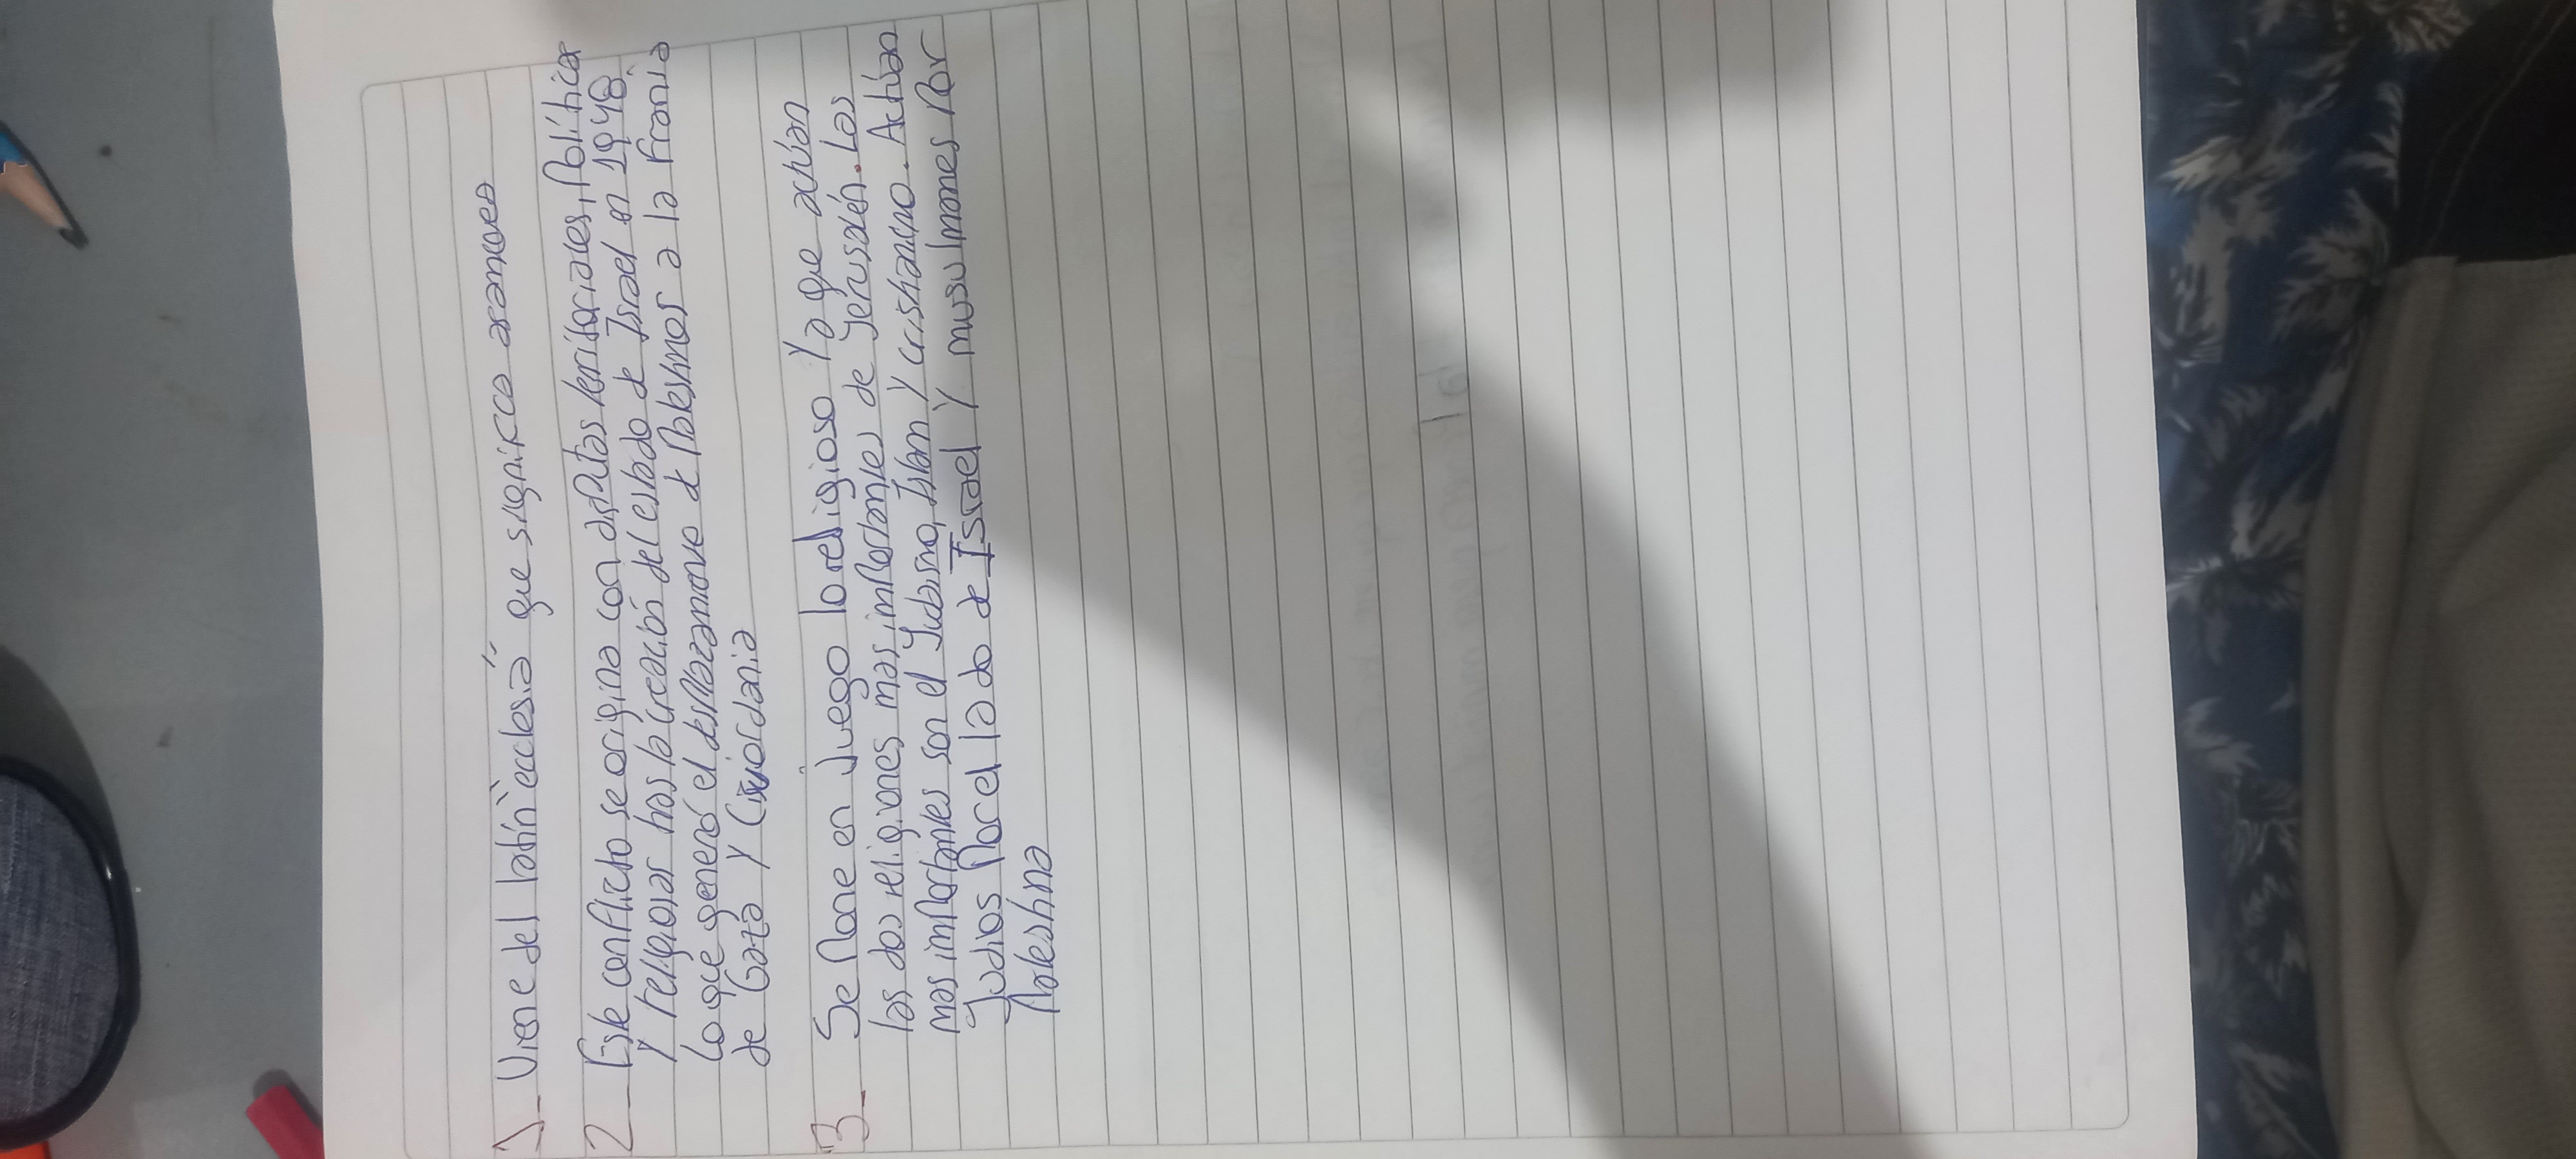 1- Viene del latín "ecclesia" que significa asamblea
2- Este conflicto se origina con disputas territoriales, políticas
y religiosas tras la creación del estado de Israel en 1948,
lo que generó el desplazamiento de Palestinos a la Franja
de Gaza y Cisjordania
3- Se Pone en Juego lo religioso Ya que actúan
las dos religiones mas importantes de Jerusalén. Las
mas importantes son el Judaismo, Islam Y cristianismo. Actúan
Judios Por el lado de Israel Y musulmanes Por
Palestina